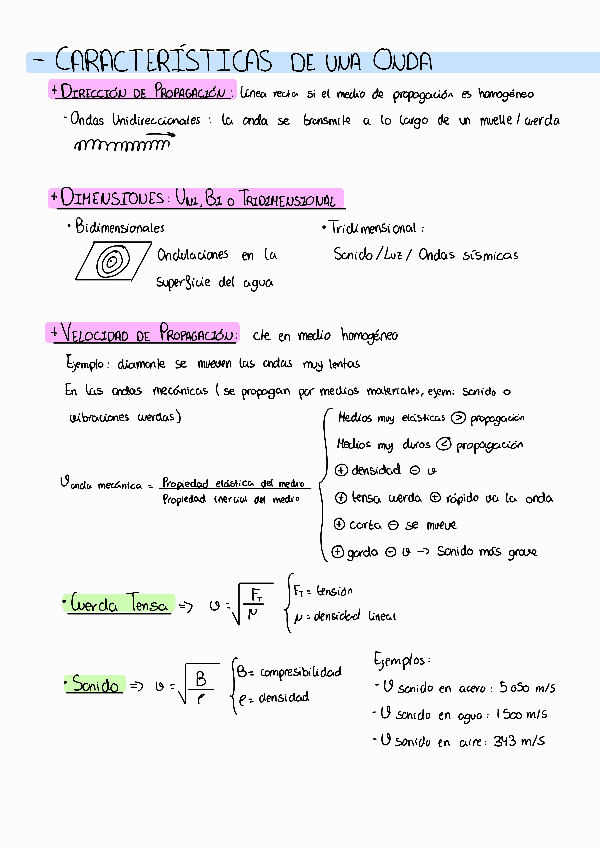 - CARACTERÍSTICAS DE UNA ONDA
+ DIRECCIÓN DE PROPAGACIÓN: línea recta si el medio de propagación es homogéneo
- Ondas Unidireccionales: la onda se transmite a lo largo de un muelle/cuerda
+ DIMENSIONES: UNI, BI o TRIDIMENSIONAL
• Bidimensionales
Ondulaciones en la
superficie del agua
• Tridimensional:
Sonido/Luz/Ondas sísmicas
+ VELOCIDAD DE PROPAGACIÓN: cte en medio homogéneo
Ejemplo: diamante se mueven las ondas muy lentas
En las ondas mecánicas (se propagan por medios materiales, ejem: sonido o
vibraciones cuerdas)
v onda mecánica = Propiedad elástica del medio
Propiedad inercial del medio
Medios muy elásticas > propagación
Medios muy duros < propagación
⊕ densidad ⊖ v
⊕ tensa cuerda ⊕ rápido va la onda
⊕ corta ⊖ se mueve
⊕ gorda ⊖ v → Sonido más grave
• Cuerda Tensa => v = √(F_T/μ)
F_T = tensión
μ = densidad lineal
• Sonido => v = √(B/ρ)
B = compresibilidad
ρ = densidad
Ejemplos:
- v sonido en acero: 5050 m/s
- v sonido en agua: 1500 m/s
- v sonido en aire: 343 m/s